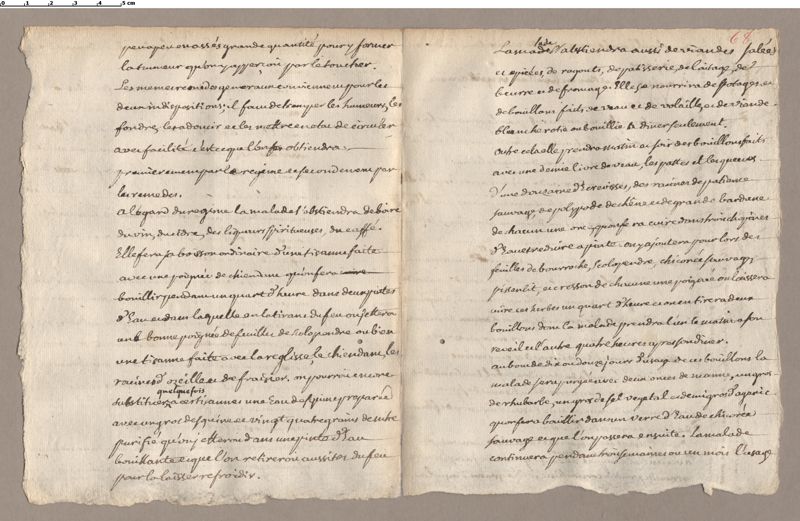 peu a peu en assés grande quantité pour y former
la tumeur qu'on y apperçoit par le toucher.
Les memes remedes generaux conviennent pour les
deux indispositions; il faut detremper les humeurs, les
fondre, les adoucir et les mettre en etat de circuler
avec facilité c'est ce que l'on obtiendra
premierement par le regime et secondement par
les remedes.
a l'egard du regime la malade s'abstiendra de boire
du vin, du cidre, des liqueurs spiritueuses, du caffé.
Elle fera sa boisson ordinaire d'une tisanne faite
avec une poignée de chiendent qu'on fera
bouillir pendant un quart d'heure dans deux pintes
d'Eau et dans laquelle en la tirant du feu on jettera
une bonne poignée de feuilles de scolopendre ou bien
une tisanne faite avec la reglisse, le chiendent, les
racines d'ozeille et de fraizier. on pourroit encore
substituer quelquefois a ces tisannes une Eau de preparée
avec un gros de squine et vingt quatre grains de nitre
purifié qu'on jettera dans une pinte d'Eau
bouillante et que l'on retirera aussitost du feu
pour la laisser refroidir.
68
La malade s'abstiendra aussi de viandes salées
et epicées, de ragouts, de patisserie, de laitage, de
beurre et de fromage. Elle se nourrira de potages et
de bouillons faits de veau et de volaille, et de viande
blanche rotie ou bouillie a diner seulement.
outre cela elle prendra matin et soir des bouillons faits
avec une demie livre de veau, les pattes et les queues
d'une douzaine d'ecrevisses, des racines de patience
sauvage, de polypode de chêne et de grande bardane
de chacun une once qu'on fera cuire dans trois
d'Eau et reduire a pinte. on y ajoutera pour lors des
feuilles de bourroche, scolopendre, chicorée sauvage,
pissenlit, et cresson de chacune une poignée on laissera
cuire ces herbes un quart d'heure et on en tirera deux
bouillons dont la malade prendra l'un le matin a son
reveil et l'autre quatre heures apres son diner.
au bout de dix ou douze jours d'usage de ces bouillons la
malade sera purgée avec deux onces de manne, un gros
de rhubarbe, un gros de sel vegetal et demi gros d'agaric
qu'on fera bouillir dans un verre d'Eau de chicorée
sauvage et que l'on passera ensuite. La malade
continuera pendant trois semaines ou un mois l'usage